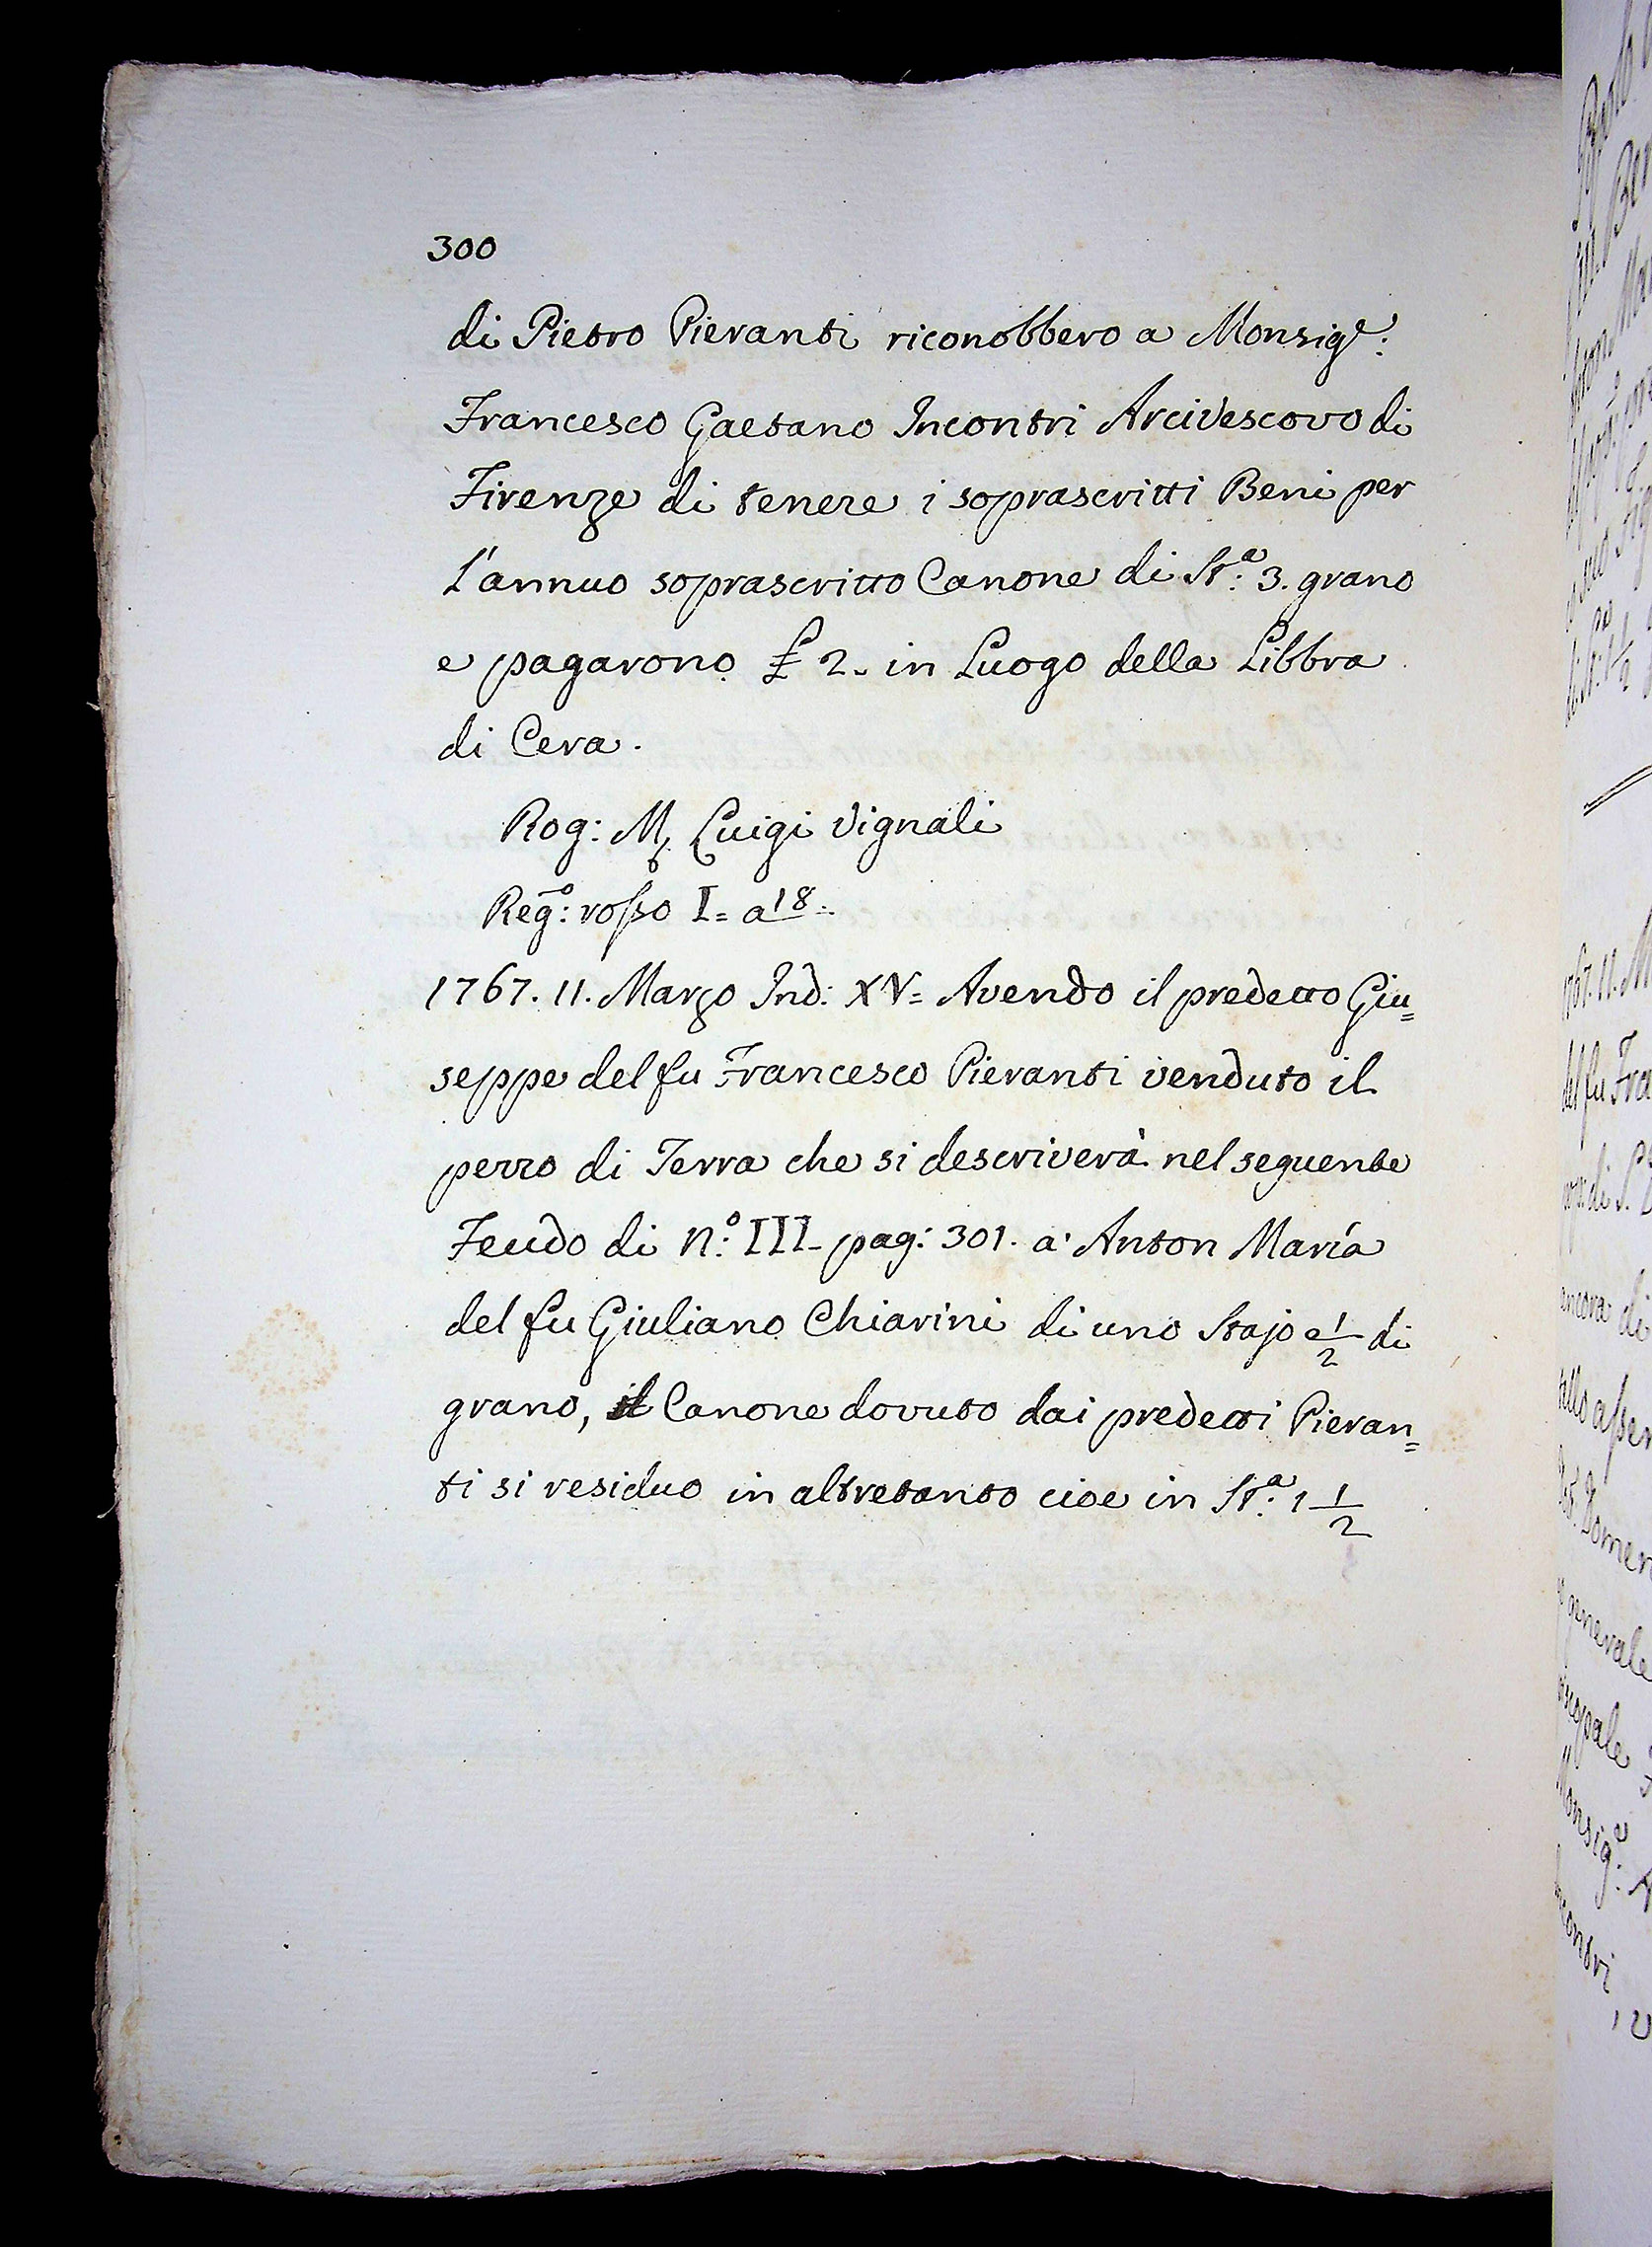 300
di Pietro Pieranti riconobbero a Monsig.e:
Francesco Gaetano Incontri Arcivescovo di
Firenze di tenere i soprascritti Beni per
l'annuo soprascritto Canone di St.a: 3. grano
e pagarono £ 2. in Luogo della Libbra
di Cera.
Rog: M, Luigi Vignali
Reg.o: rosso I= a 18=
1767. 11. Marzo Ind: XV= Avendo il predetto Giu=
seppe del fu Francesco Pieranti venduto il
pezzo di Terra che si descriverà nel seguente
Feudo di N.o: III- pag: 301. a' Anton Maria
del fu Giuliano Chiarini di uno Stajo e 1/2 di
grano, il Canone dovuto dai predetti Pieran=
ti si residuo in altretanto cioe in St.a: 1 1/2